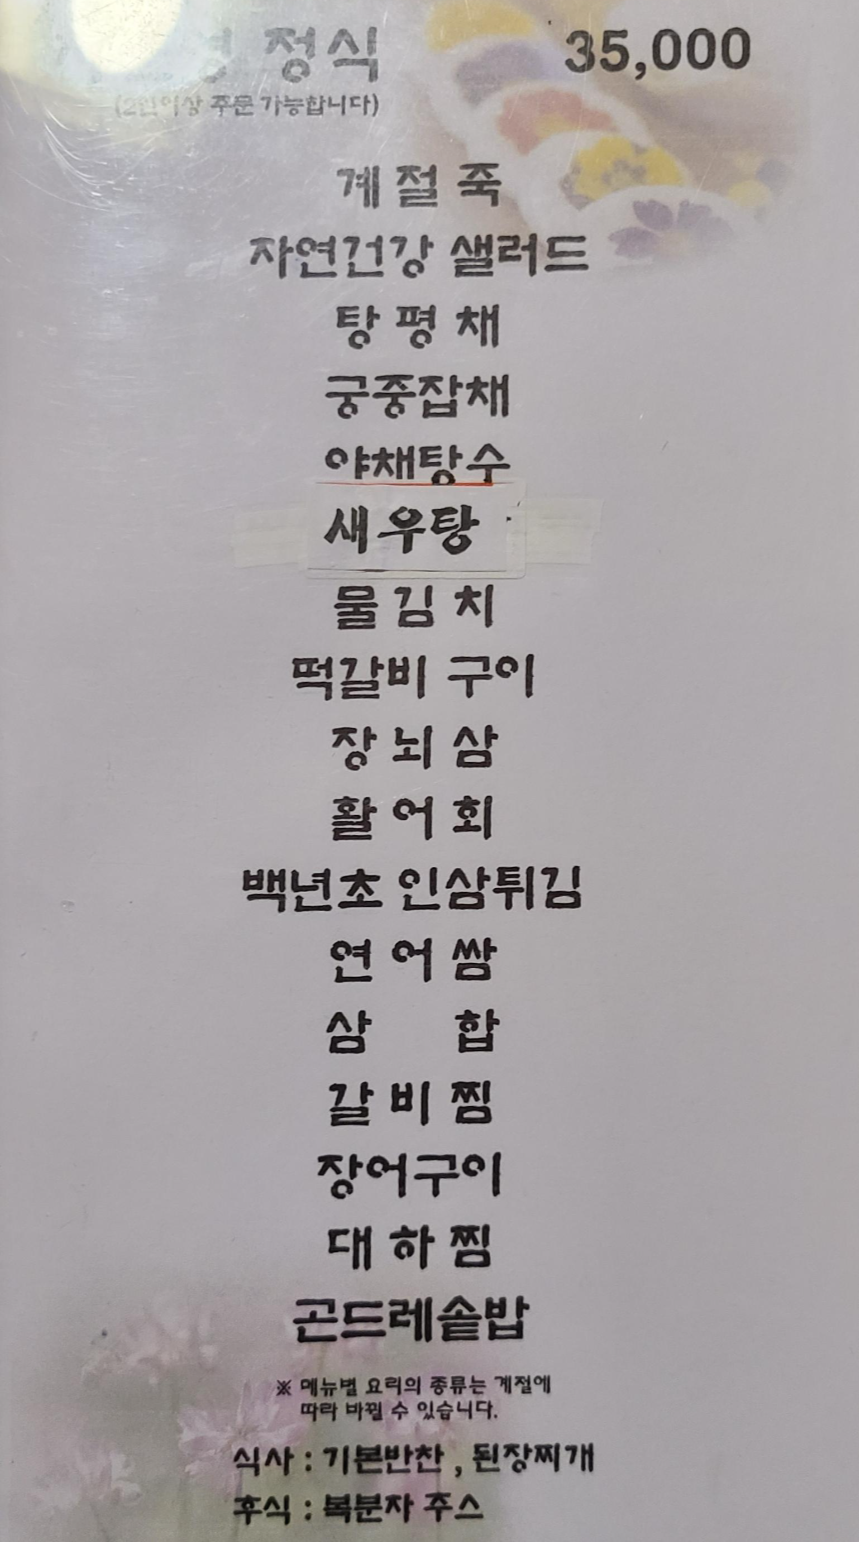 정식 35,000
(2인이상 주문 가능합니다)
계절죽
자연건강 샐러드
탕평채
궁중잡채
야채탕수
새우탕
물김치
떡갈비 구이
장뇌삼
활어회
백년초 인삼튀김
연어쌈
삼 합
갈비찜
장어구이
대하찜
곤드레솥밥
※ 메뉴별 요리의 종류는 계절에
따라 바뀔 수 있습니다.
식사 : 기본반찬 , 된장찌개
후식 : 복분자 주스